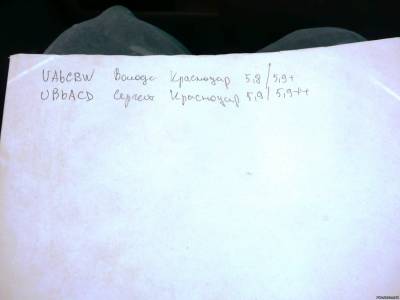 UA6CBW Володя Краснодар 5,8/5,9+
UB6ACD Сергей Краснодар 5,9/5,9++